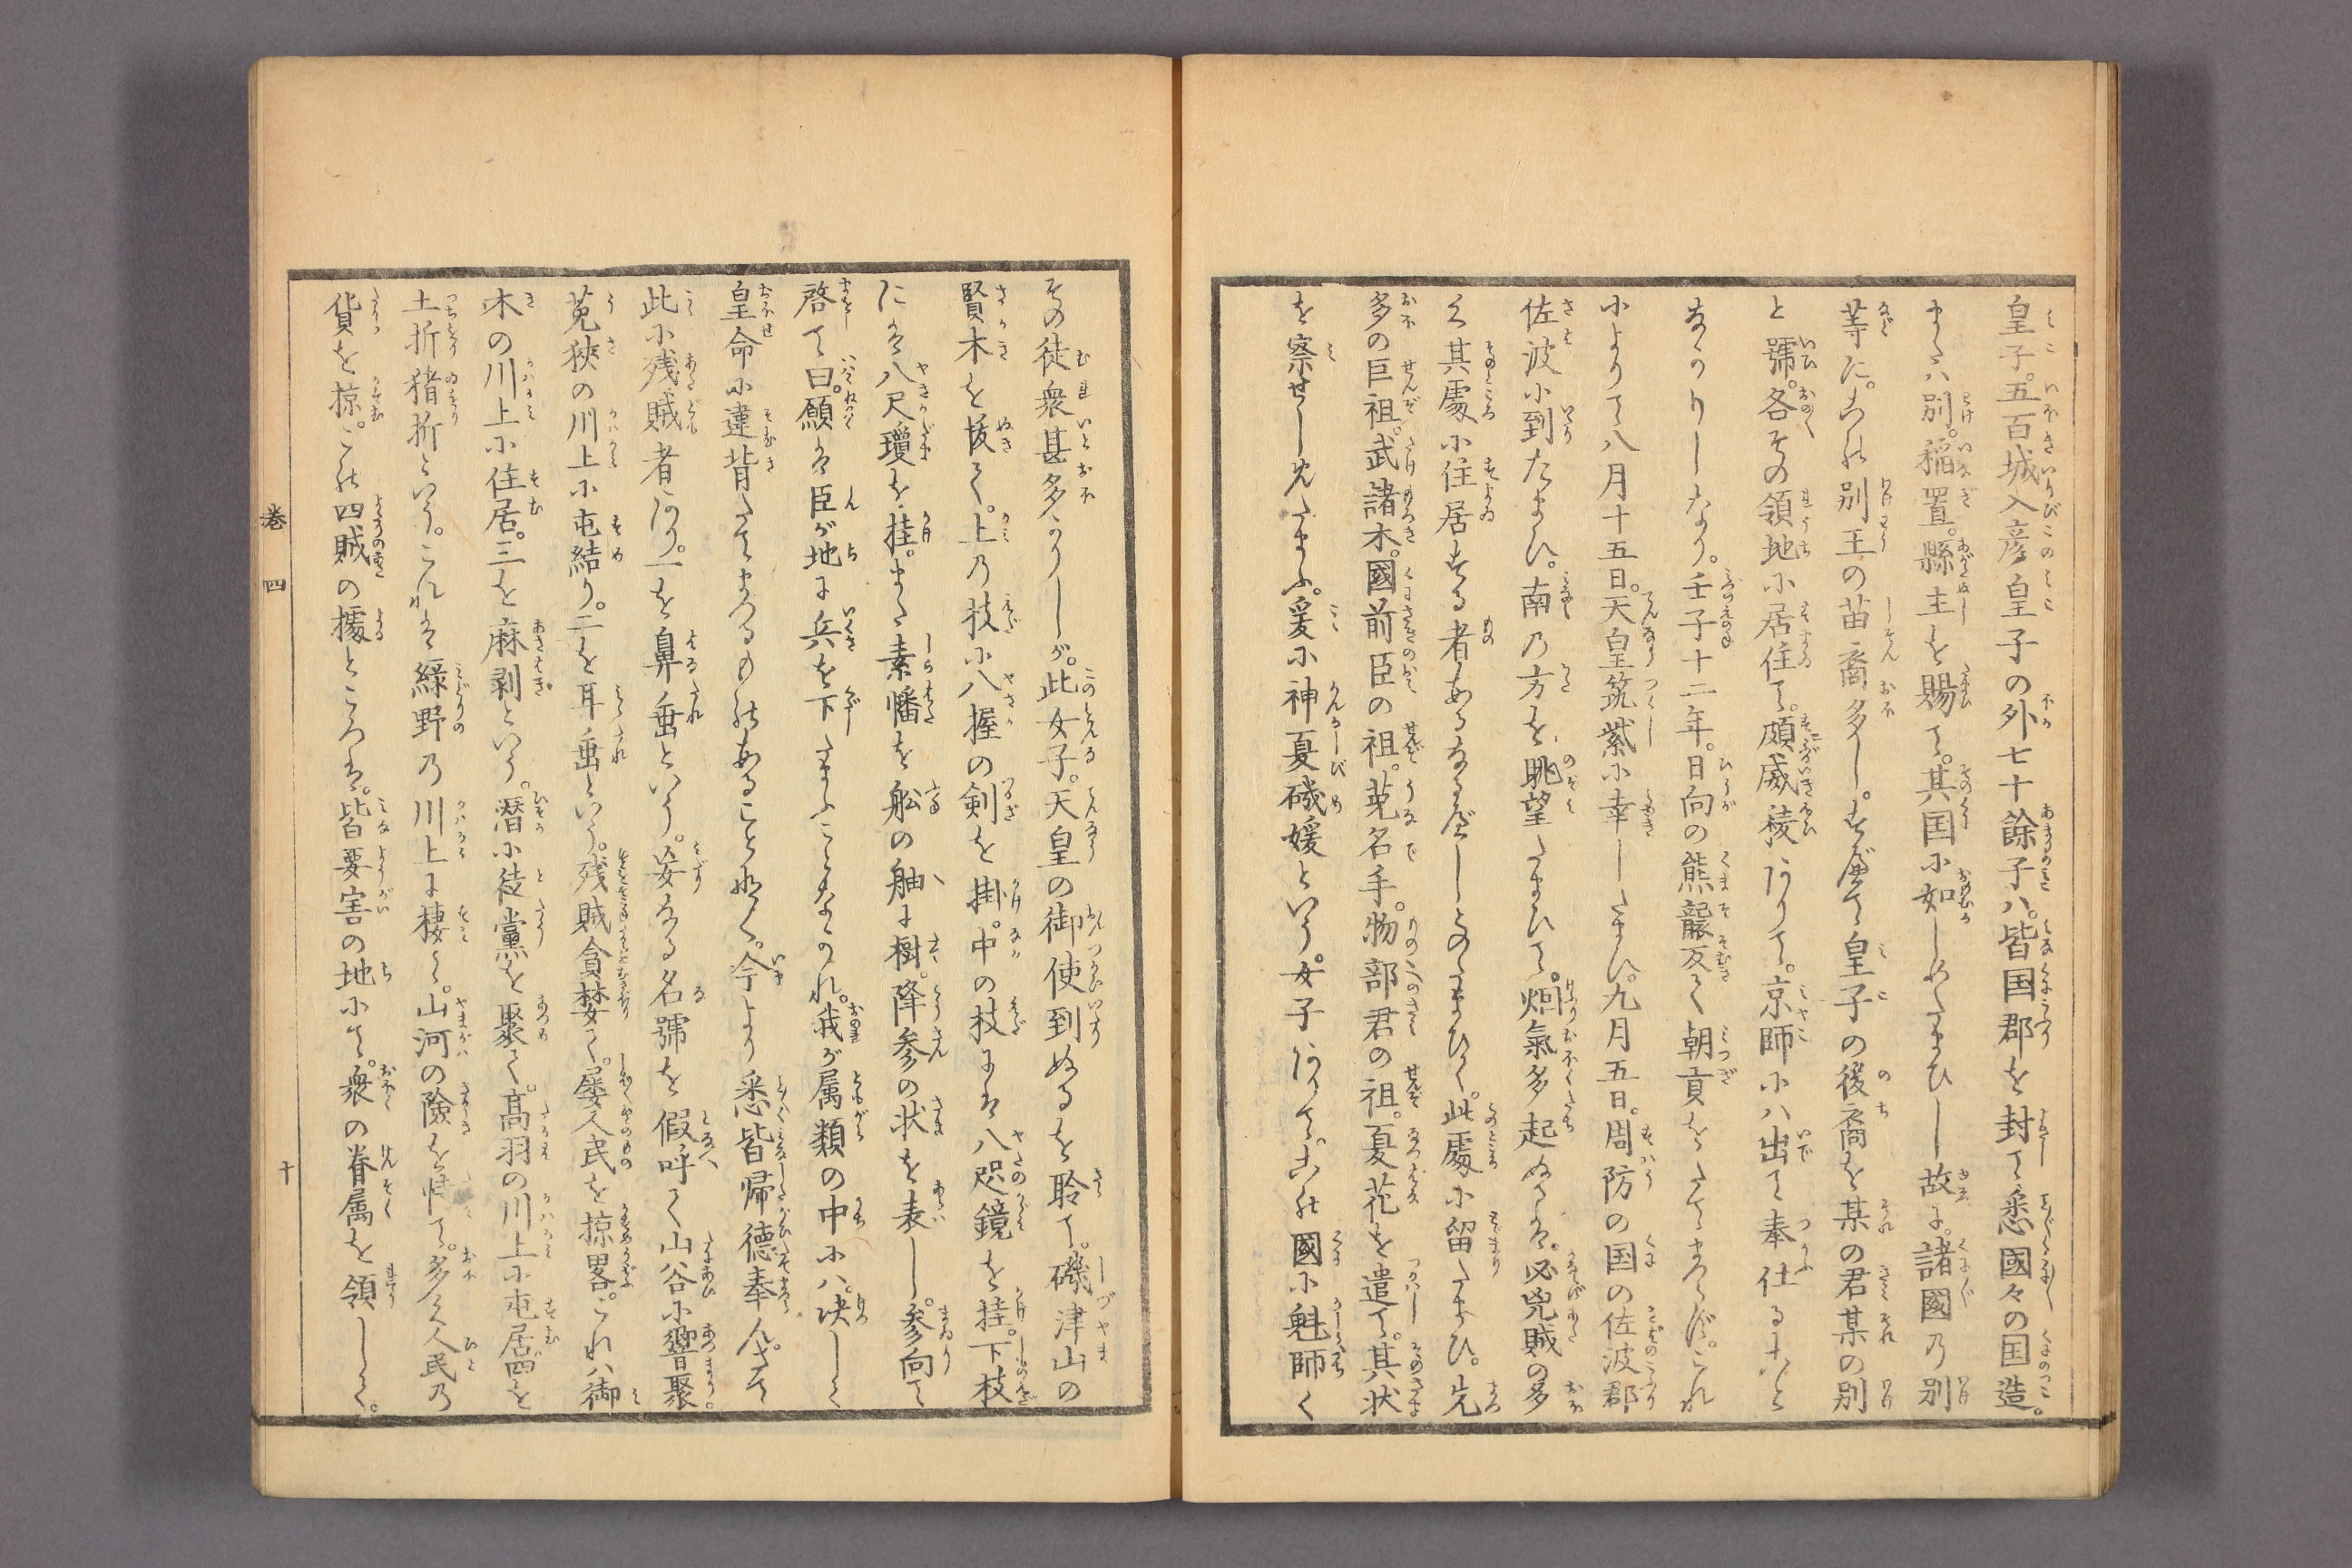 皇子。五百城入彦皇子の外七十餘子ハ。皆国郡を封て悉國々の国造。
また八別。稲置。縣主を賜て。其国に如しめたまひし故に。諸國乃別
等に。これ別王の苗裔多し。すべて皇子の後裔を某の君某の別
と號。各その領地に居住て。頗威稜ありて。京師にハ出て奉仕ることと
なかりしなり。壬子十二年。日向の熊襲反て朝貢をたてまつらず。これ
によりて八月十五日。天皇筑紫に幸したまひ。九月五日。周防の国の佐波郡
佐波に到たまひ。南乃方を眺望たまひて。烟氣多起ぬるは。必兇賊の多
く其處に住居する者あるなるべしとのたまひて。此處に留たまひ。先
多の臣祖。武諸木。國前臣の祖。菟名手。物部君の祖。夏花を遣て。其状
を察せしめたまふ。爰に神夏磯媛といふ。女子ありて。これ國に魁師く
その徒衆甚多かりしが。此女子。天皇の御使到ぬるを聆て。磯津山の
賢木を抜て。上乃枝に八握の剣を掛。中の枝には八咫鏡を挂。下枝
には八尺瓊を挂。また素幡を舩の舳に樹。降参の状を表し。参向て
啓て曰。願は臣が地に兵を下たまふことなかれ。我が属類の中にハ。决して
皇命に違背たてまつるものあることなく。今より悉皆帰德奉らん。さて
此に残賊者あり。一を鼻垂といふ。妄なる名號を假呼て山谷に響聚。
菟狹の川上に屯結り。二を耳垂といふ。残賊貪婪て。屡人民を掠畧。これハ御
木の川上に住居。三を麻剥といふ。潛に徒黨を聚て。高羽の川上に屯居。四を
土折猪折といふ。これは緑野乃川上に棲て。山河の險を恃て。多く人民乃
貨を掠。これ四賊の據ところは。皆要害の地にて。衆の眷属を領して。
巻四
十